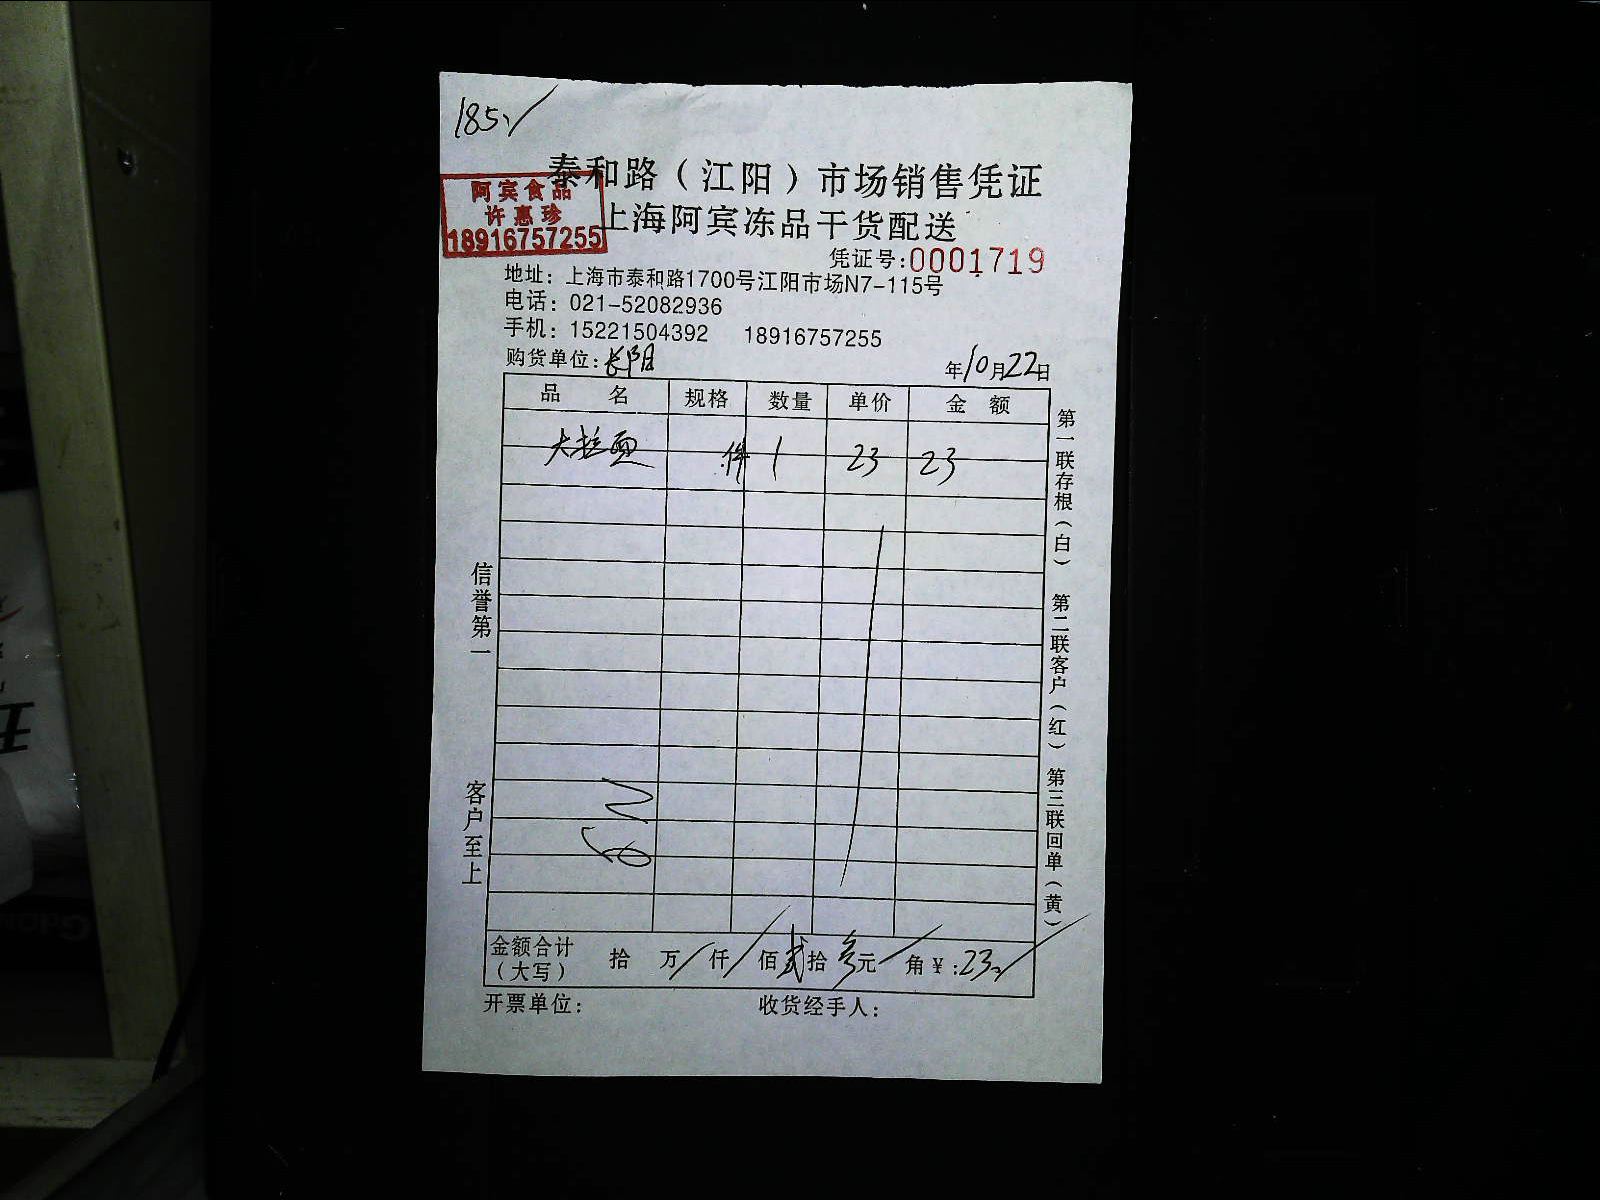 185
泰和路（江阳）市场销售凭证
阿宾食品
许惠珍
18916757255
上海阿宾冻品干货配送
凭证号:0001719
地址：上海市泰和路1700号江阳市场N7-115号
电话：021-52082936
手机：15221504392 18916757255
购货单位:长阳 年10月22日
品名 规格 数量 单价 金额
大拉面 件 1 23 23
信誉第一
客户至上
第一联存根（白） 第二联客户（红） 第三联回单（黄）
金额合计（大写） 拾 万 仟 佰贰拾叁元 角￥:23
开票单位： 收货经手人：